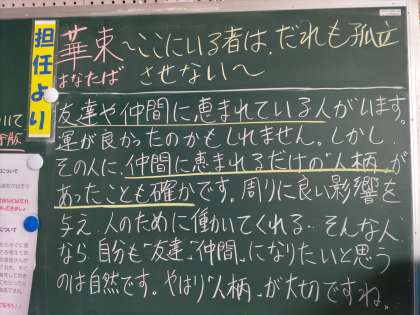 担任より
華束〜ここにいる者は、だれも孤立
はなたば させない〜
友達や仲間に恵まれている人がいます。
運が良かったのかもしれません。しかし、
その人に、仲間に恵まれるだけの“人柄”が
あったことも確かです。周りに良い影響を
与え、人のために働いてくれる…そんな人
なら、自分も“友達”“仲間”になりたいと思う
のは自然です。やはり“人柄”が大切ですね。